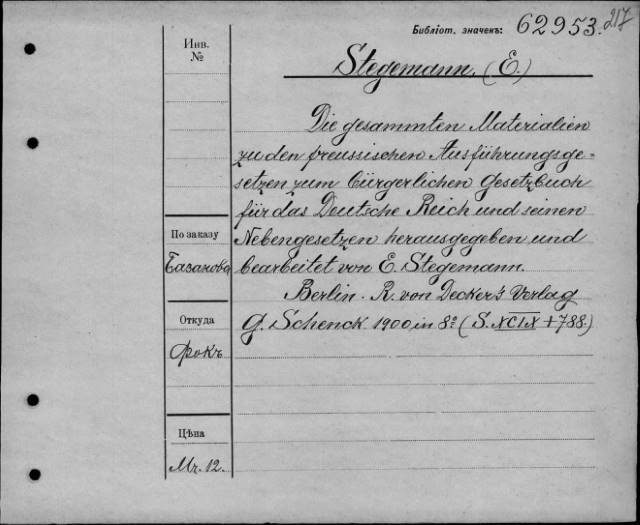 Библіот. значекъ: 62953. 217
Инв.
№
Stegemann. (E.)
Die gesammten Materialien
zu den preussischen Ausführungsge-
setzen zum bürgerlichen Gesetzbuch
für das Deutsche Reich und seinen
Nebengesetzen herausgegeben und
bearbeitet von E. Stegemann.
Berlin. R. von Decker's Verlag
G. Schenck 1900 in 8º (S. XCIX + 788.)
По заказу
Базанова
Откуда
Фокъ
Цѣна
Mr. 12.